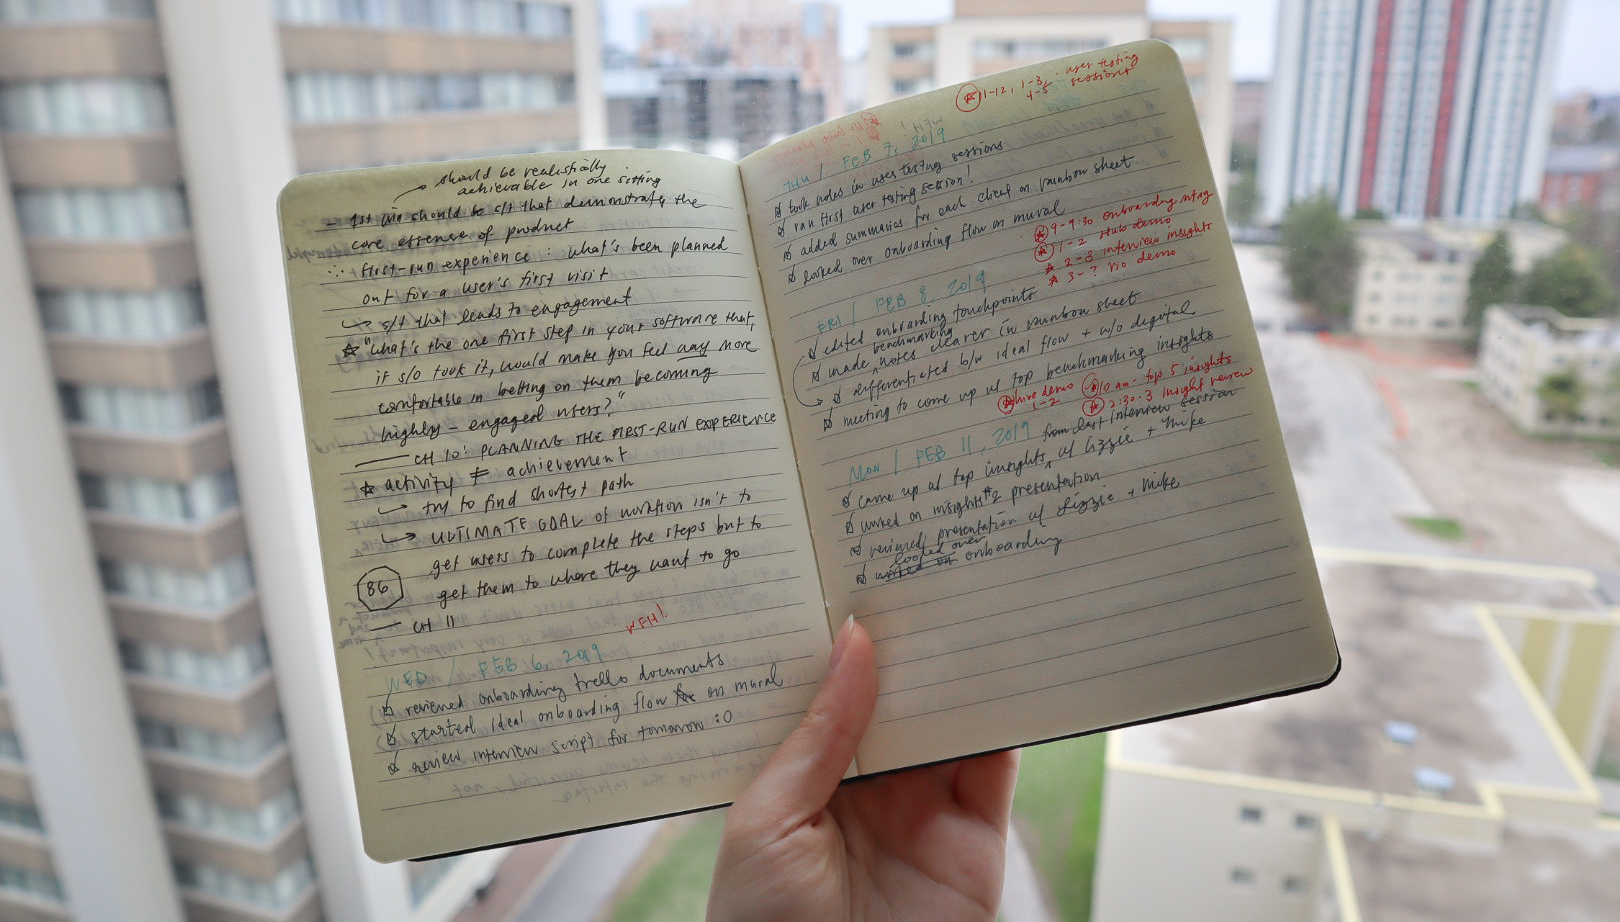 should be realistically
achievable in one sitting
- 1st win should be s/t that demonstrates the
core essence of product
∴ first-run experience : what's been planned
out for a user's first visit
↳ s/t that leads to engagement
☆ "what's the one first step in your software that,
if s/o took it, would make you feel way more
comfortable in betting on them becoming
highly-engaged users?"
— CH 10: PLANNING THE FIRST-RUN EXPERIENCE
☆ activity ≠ achievement
↳ try to find shortest path
↳ ULTIMATE GOAL of workflow isn't to
get users to complete the steps but to
get them to where they want to go
86
— CH 11
WFH!
WED / FEB 6, 2019
reviewed onboarding trello documents
started ideal onboarding flow on mural
review interview script for tomorrow :O
☆ 11-12, 1-3, - user testing
4-5 sessions
THU / FEB 7, 2019
took notes in user testing sessions
ran first user testing session!
added summaries for each client on rainbow sheet
looked over onboarding flow on mural
☆ 9-9:30 onboarding mtg
☆ 1-2 hub demo
☆ 2-3 interview insights
☆ 3-? rio demo
FRI / FEB 8, 2019
edited onboarding touchpoints
benchmarking
made notes clearer in rainbow sheet
differentiated b/w ideal flow + w/o digital
meeting to come up w/ top benchmarking insights
☆ hive demo
1-2
☆ 10 am - top 5 insights
☆ 2:30-3 insight review
MON / FEB 11, 2019
from last interview session
came up w/ top insights w/ lizzie + mike
worked on insight #2 presentation
reviewed presentation w/ lizzie + mike
looked over
worked on onboarding